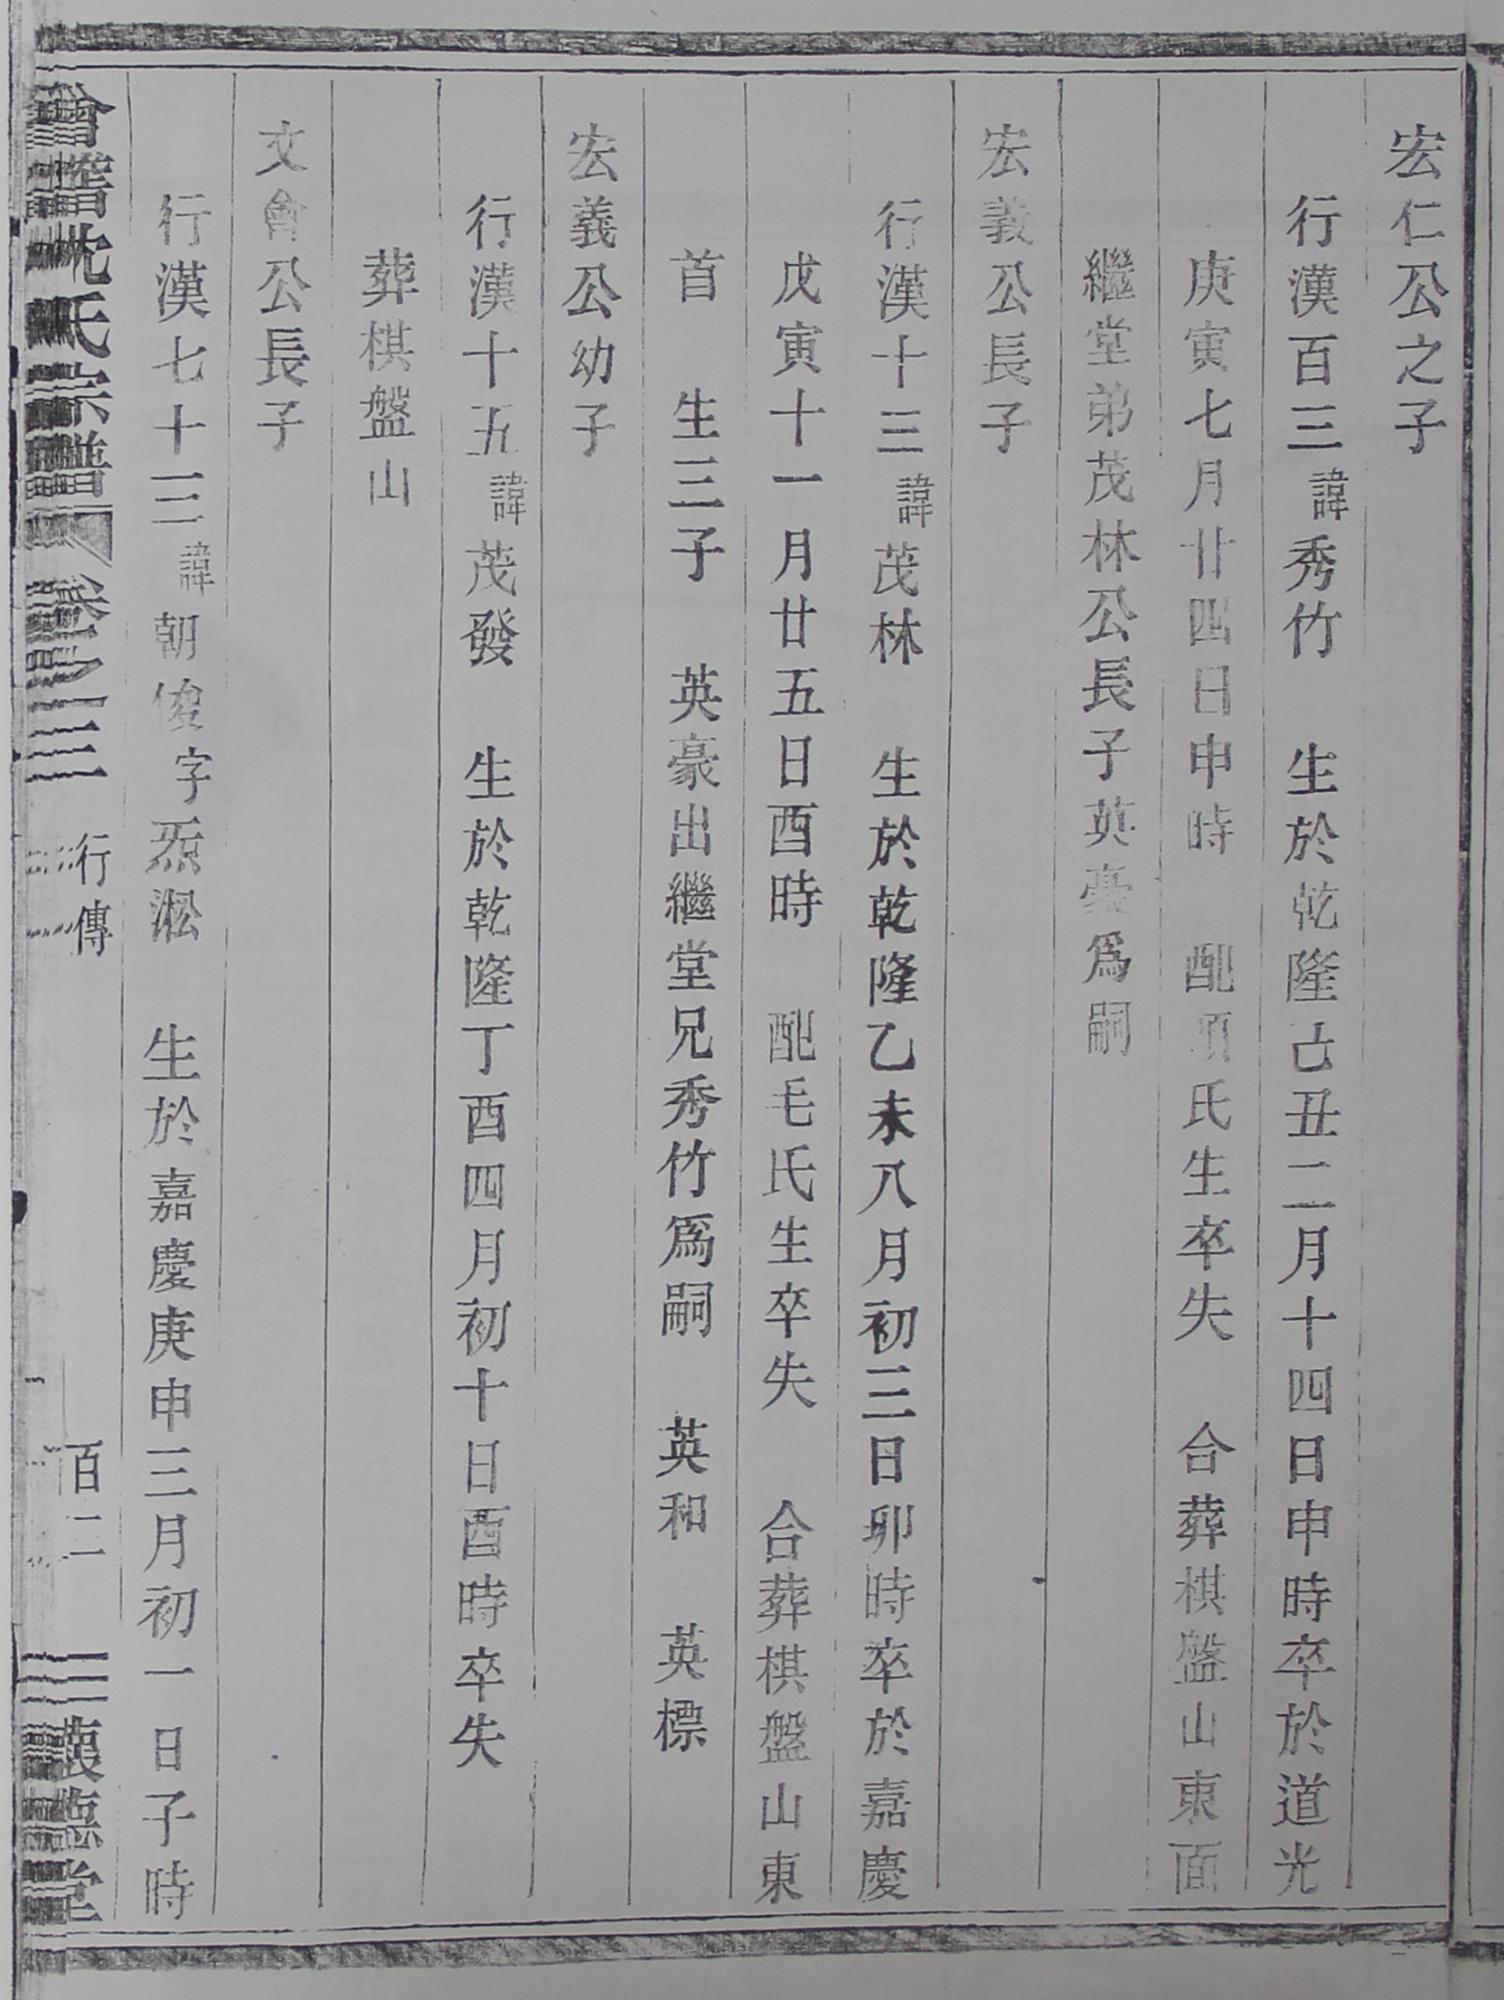 宏仁公之子
行漢百三諱秀竹　生於乾隆己丑二月十四日申時卒於道光
庚寅七月廿四日申時　配項氏生卒失　合葬棋盤山東面
繼堂弟茂林公長子英豪爲嗣
宏義公長子
行漢十三諱茂林　生於乾隆乙未八月初三日卯時卒於嘉慶
戊寅十一月廿五日酉時　配毛氏生卒失　合葬棋盤山東
首　生三子　英豪出繼堂兄秀竹爲嗣　英和　英標
宏義公幼子
行漢十五諱茂發　生於乾隆丁酉四月初十日酉時卒失
葬棋盤山
文會公長子
行漢七十三諱朝俊字淞　生於嘉慶庚申三月初一日子時
會稽沈氏宗譜　卷八三　行傳　百二　德堂